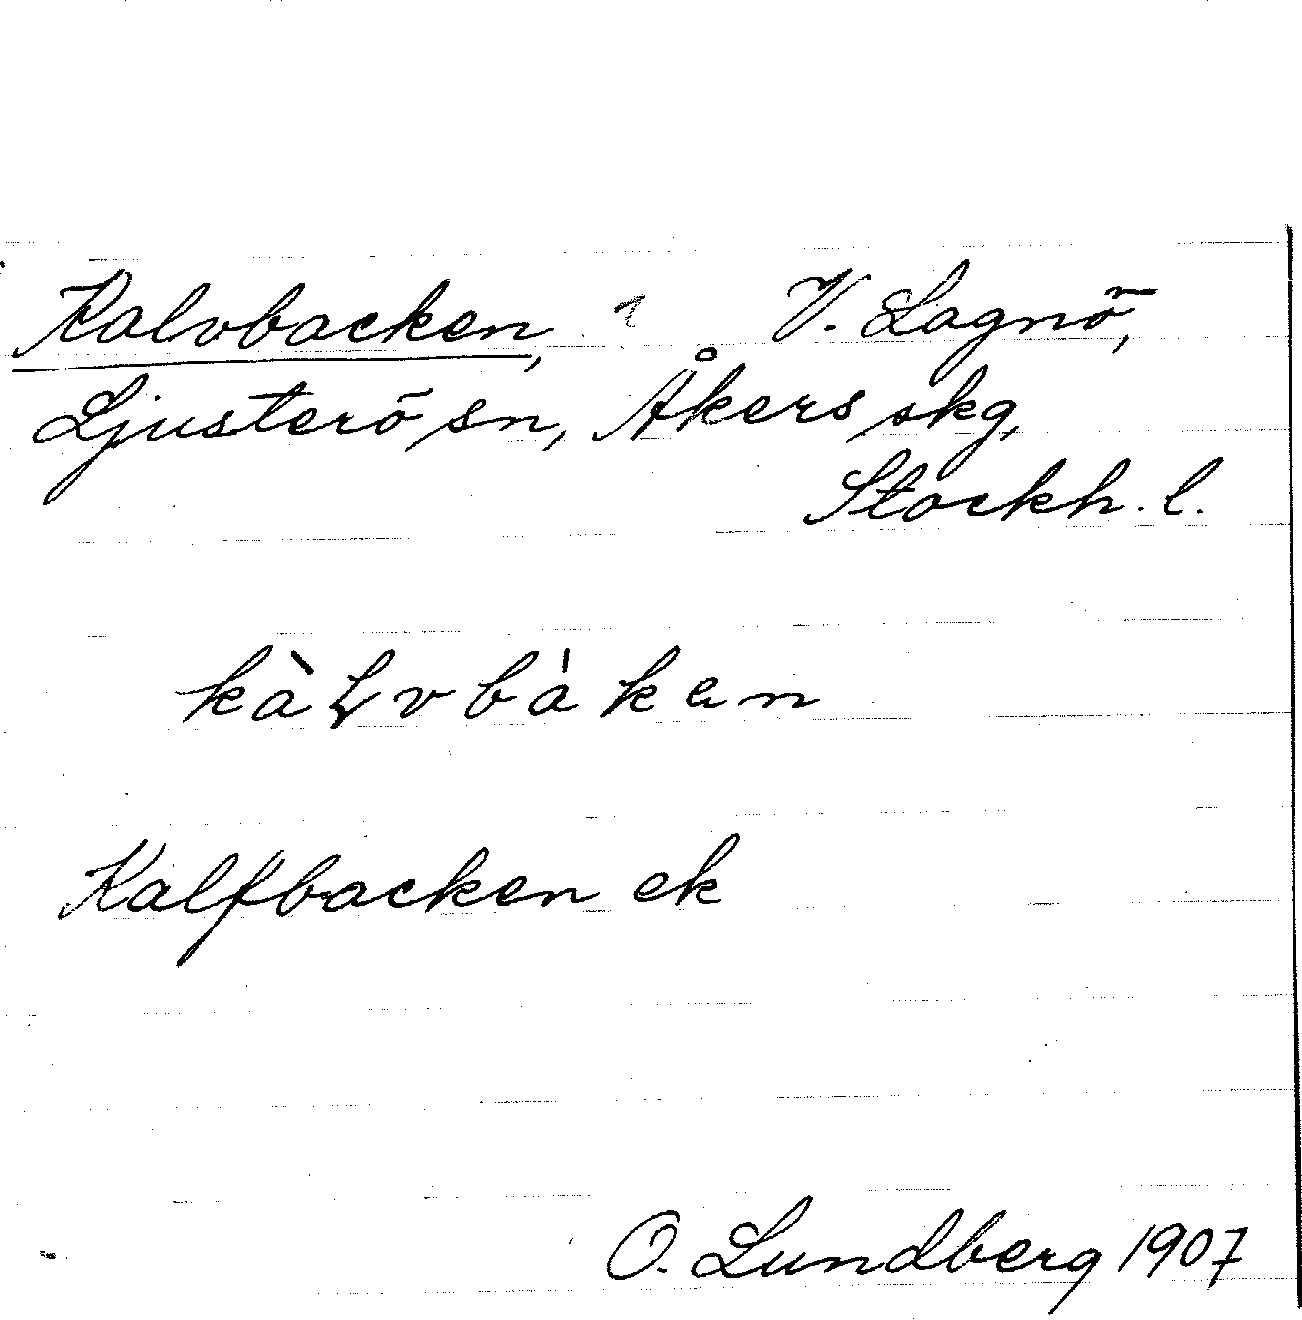 Kalvbacken, 1 V. Lagnö,
Ljusterö sn, Åkers skg,
Stockh. l.
kàɭvbàkɐn
Kalfbacken ek
O. Lundberg 1907